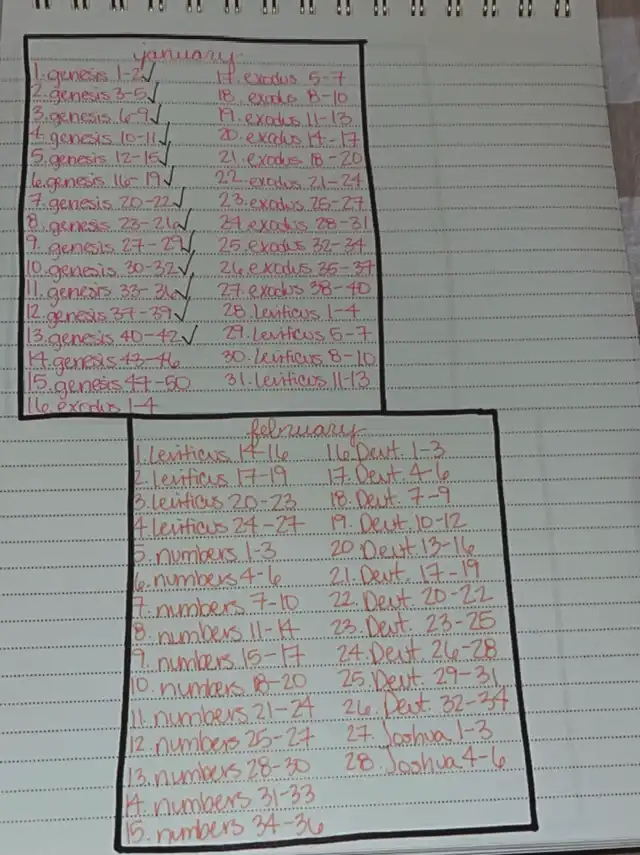 january
1. genesis 1-2✓
2. genesis 3-5✓
3. genesis 6-9✓
4. genesis 10-11✓
5. genesis 12-15✓
6. genesis 16-19✓
7. genesis 20-22✓
8. genesis 23-26✓
9. genesis 27-29✓
10. genesis 30-32✓
11. genesis 33-36✓
12. genesis 37-39✓
13. genesis 40-42✓
14. genesis 43-46
15. genesis 47-50
16. exodus 1-4
17. exodus 5-7
18. exodus 8-10
19. exodus 11-13
20. exodus 14-17
21. exodus 18-20
22. exodus 21-24
23. exodus 25-27
24. exodus 28-31
25. exodus 32-34
26. exodus 35-37
27. exodus 38-40
28. Leviticus 1-4
29. Leviticus 5-7
30. Leviticus 8-10
31. Leviticus 11-13
february
1. Leviticus 14-16
2. Leviticus 17-19
3. Leviticus 20-23
4. Leviticus 24-27
5. numbers 1-3
6. numbers 4-6
7. numbers 7-10
8. numbers 11-14
9. numbers 15-17
10. numbers 18-20
11. numbers 21-24
12. numbers 25-27
13. numbers 28-30
14. numbers 31-33
15. numbers 34-36
16. Deut. 1-3
17. Deut. 4-6
18. Deut. 7-9
19. Deut. 10-12
20. Deut. 13-16
21. Deut. 17-19
22. Deut. 20-22
23. Deut. 23-25
24. Deut. 26-28
25. Deut. 29-31
26. Deut. 32-34
27. Joshua 1-3
28. Joshua 4-6